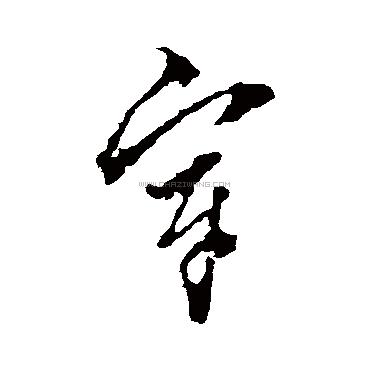 宰
WWW.CHAZIWANG.COM